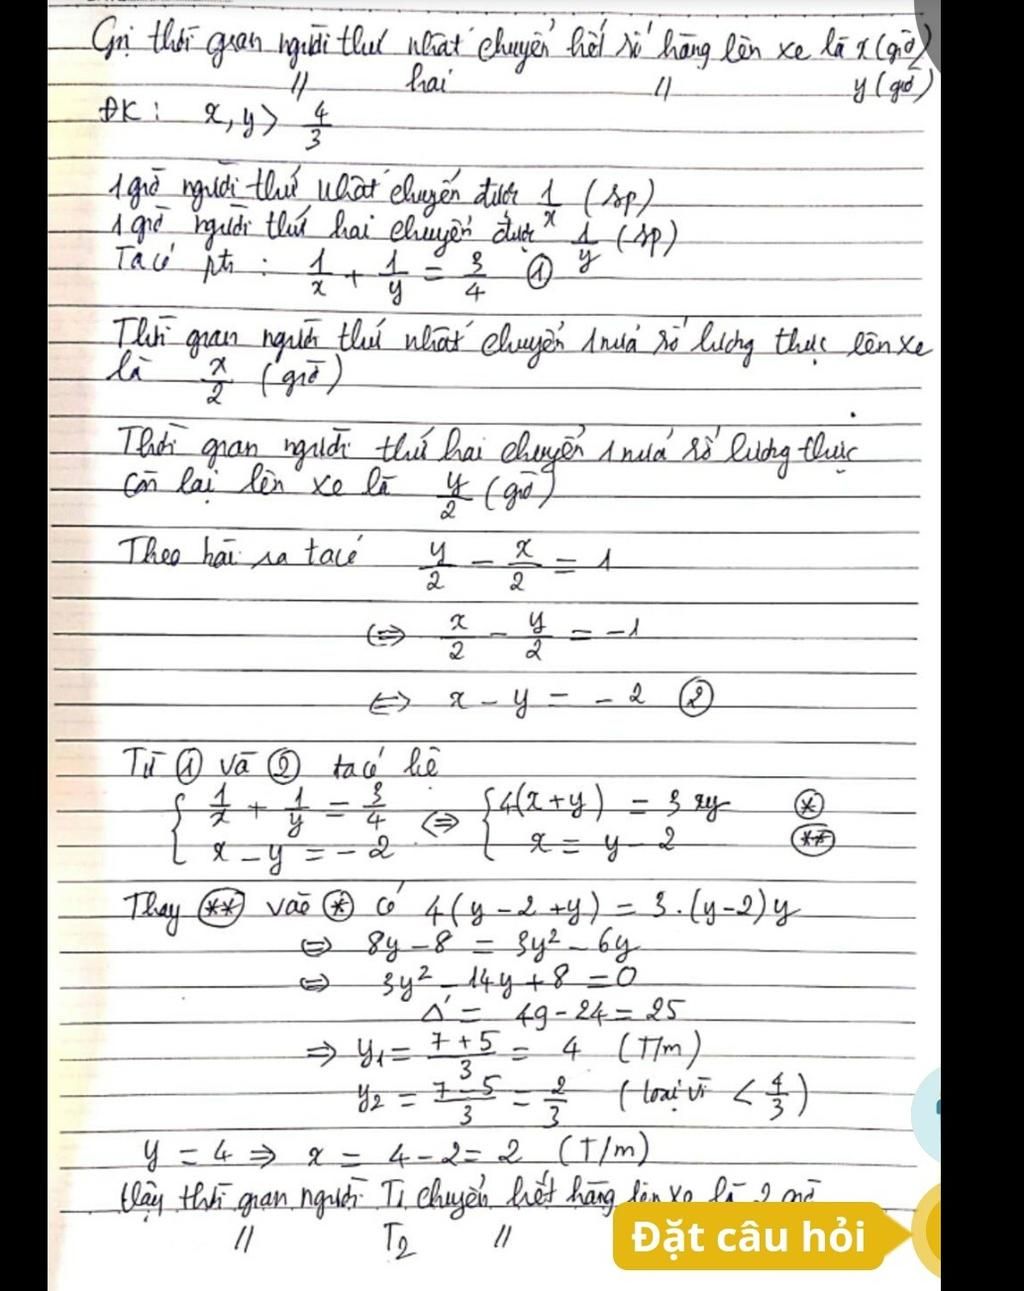 Gọi thời gian người thứ nhất chuyển hết số hàng lên xe là x (giờ)
// hai // y (giờ)
ĐK: x, y > 4/3
1 giờ người thứ nhất chuyển được 1/x (sp)
1 giờ người thứ hai chuyển được 1/y (sp)
Ta có pt: 1/x + 1/y = 3/4 ①
Thời gian người thứ nhất chuyển 1 nửa số lương thực lên xe
là x/2 (giờ)
Thời gian người thứ hai chuyển 1 nửa số lương thực
còn lại lên xe là y/2 (giờ)
Theo bài ra ta có y/2 - x/2 = 1
⇔ x/2 - y/2 = -1
⇔ x - y = -2 ②
Từ ① và ② ta có hệ
{ 1/x + 1/y = 3/4 ⇔ { 4(x+y) = 3xy (*)
x - y = -2 x = y - 2 (**)
Thay (**) vào (*) có 4(y - 2 + y) = 3.(y-2)y
⇔ 8y - 8 = 3y² - 6y
⇔ 3y² - 14y + 8 = 0
Δ' = 49 - 24 = 25
⇒ y₁ = (7+5)/3 = 4 (T/m)
y₂ = (7-5)/3 = 2/3 (loại vì < 4/3)
y = 4 ⇒ x = 4 - 2 = 2 (T/m)
Vậy thời gian người T₁ chuyển hết hàng lên xe là 2 giờ
// T₂ //
Đặt câu hỏi